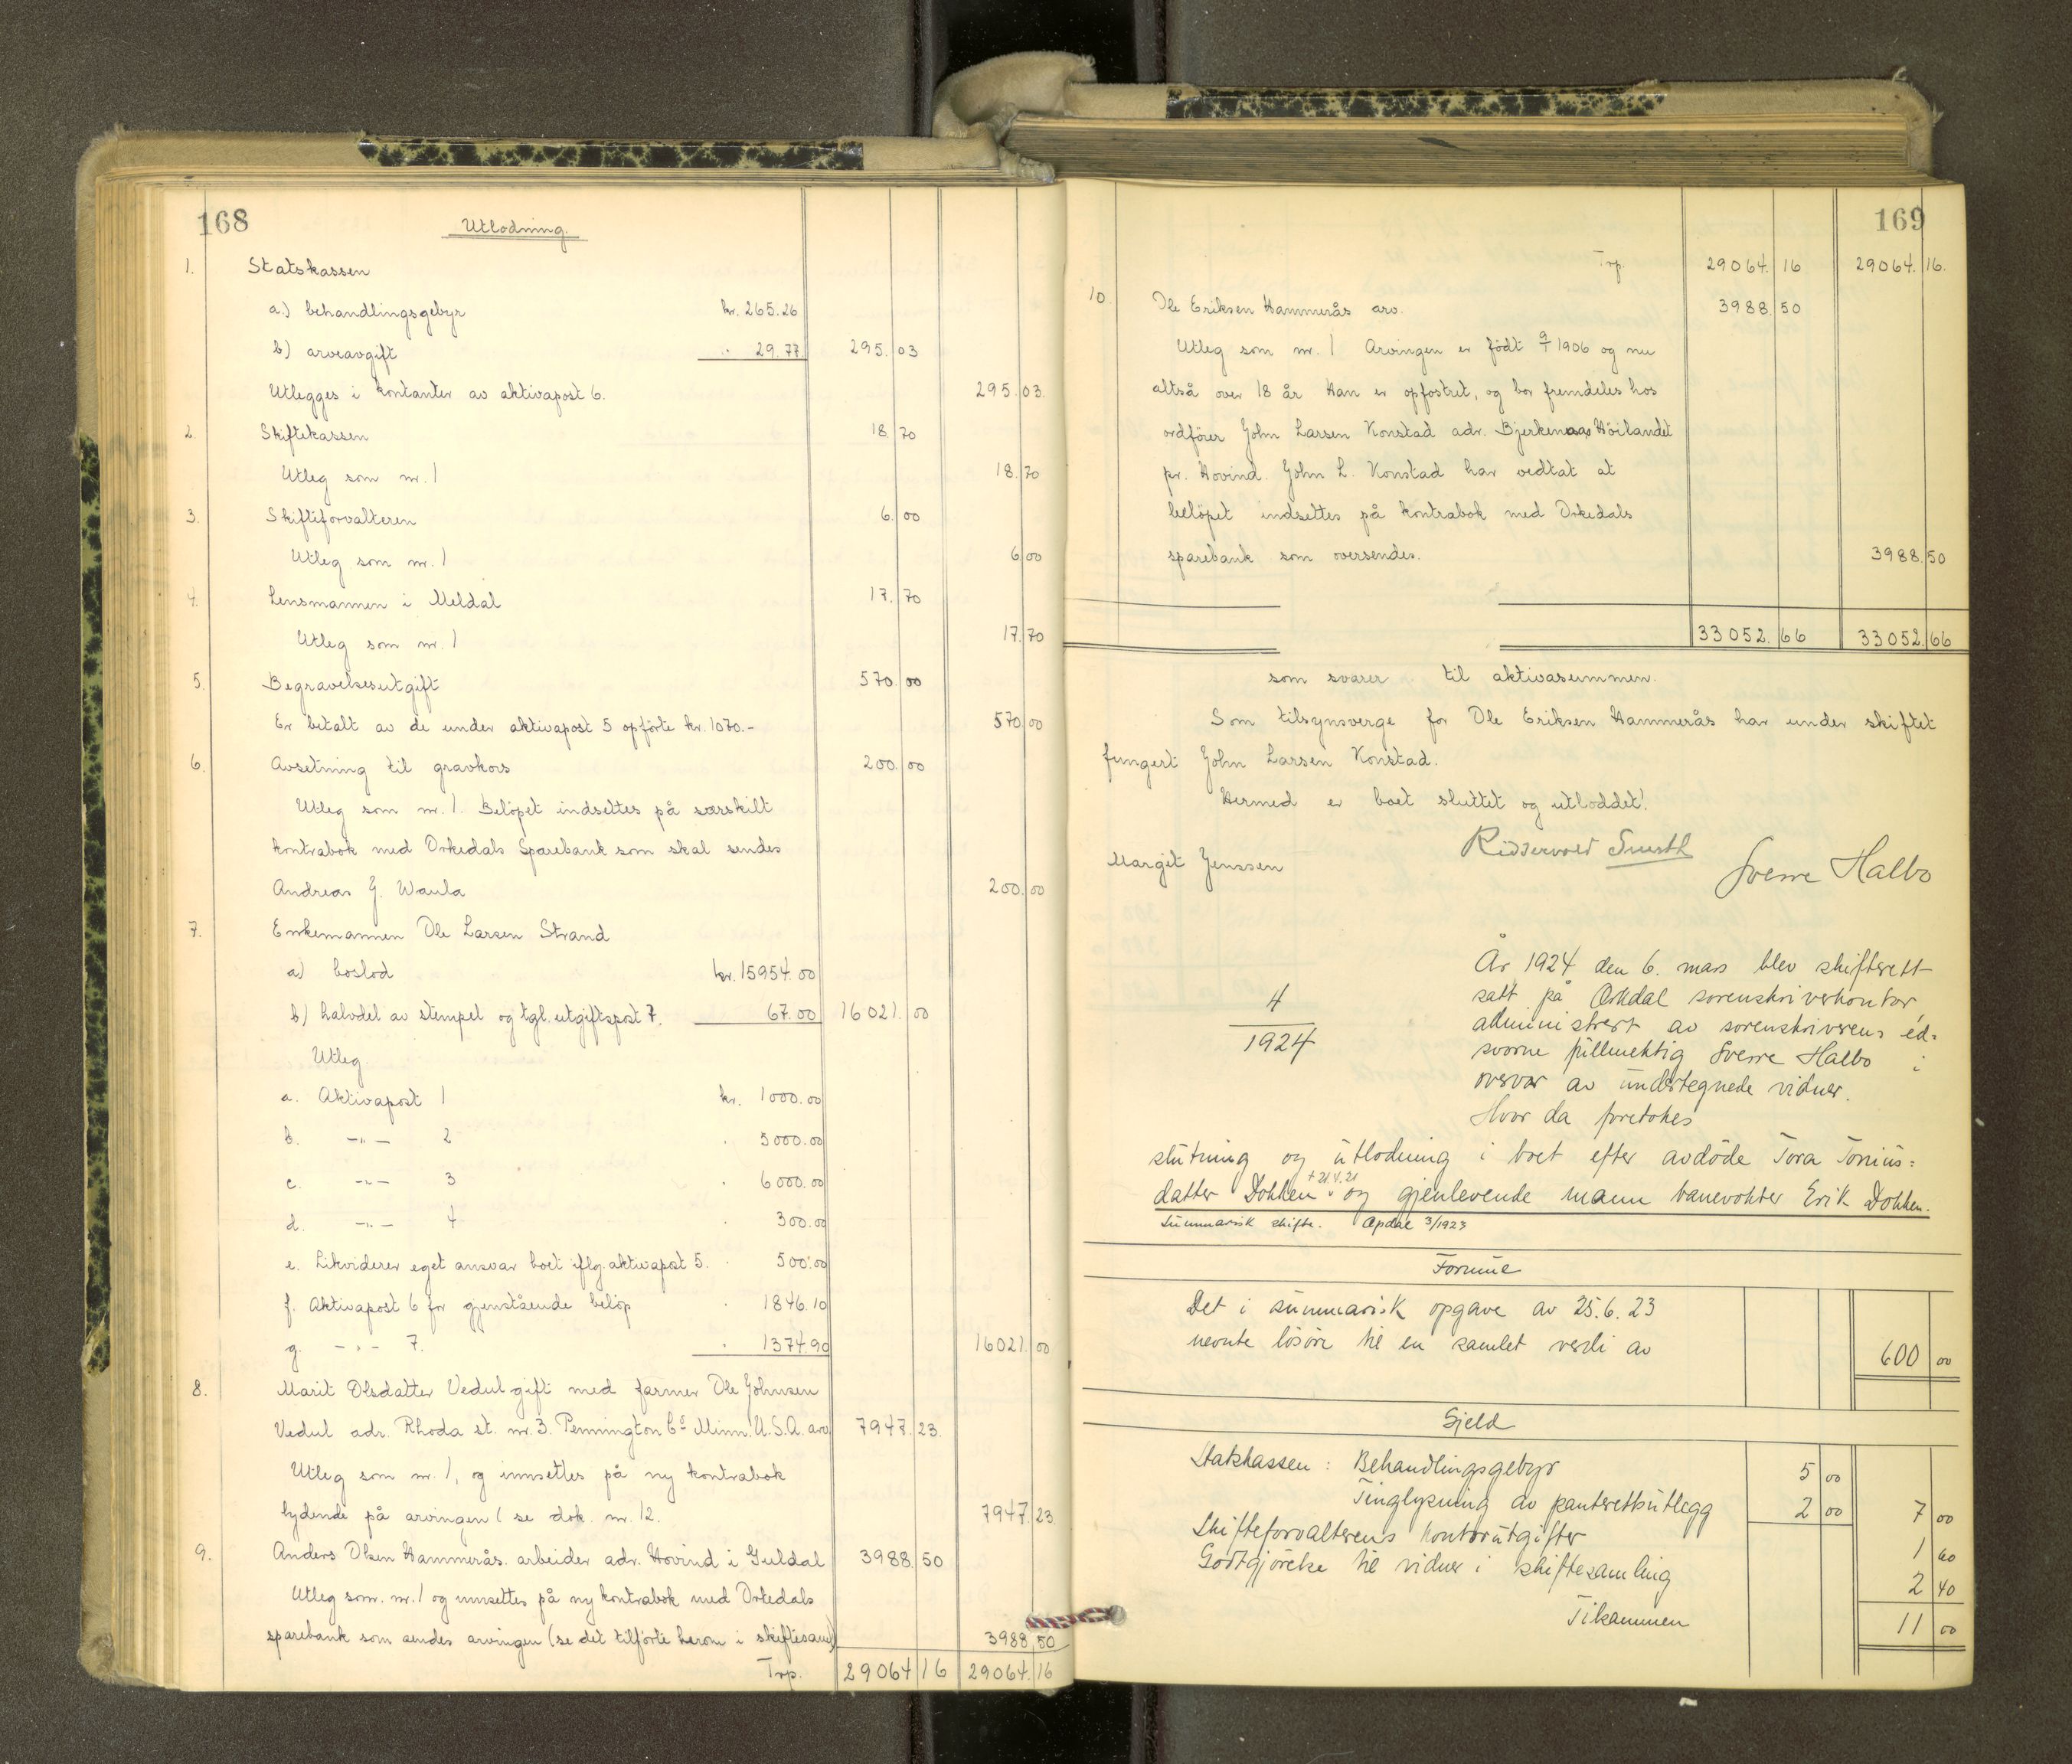 168
Utlodning.
1. Statskassen
a.) behandlingsgebyr kr. 265.26
b) arveavgift " 29.77 295.03
Utlegges i kontanter av aktivapost 6. 295.03.
2. Skiftekassen 18.70
Utleg som nr. 1 18.70
3. Skifteforvalteren 6.00
Utleg som nr. 1 6.00
4. Lensmannen i Meldal 17.70
Utleg som nr. 1 17.70
5. Begravelsesutgift 570.00
Er betalt av de under aktivapost 5 opförte kr. 1070.- 570.00
6. Avsetning til gravkors 200.00
Utleg som nr. 1. Belöpet indsettes på særskilt
kontrabok med Orkedals Sparebank som skal sendes
Andreas J. Waula 200.00
7. Enkemannen Ole Larsen Strand
a) boslod kr. 15954.00
b) halvdel av stempel og tgl. utgiftspost 7. 67.00 16021.00
Utleg.
a. Aktivapost 1 kr. 1000.00
b. -"- 2 . 5000.00
c. -"- 3 . 6000.00
d. -"- 4 . 300.00
e. Likviderer eget ansvar boet iflg. aktivapost 5. . 500.00
f. Aktivapost 6 for gjenstående belöp . 1846.10
g. -"- 7. . 1374.90 16021.00
8. Marit Olsdatter Vedul gift med farmer Ole Johnsen
Vedul adr. Rhoda st. nr. 3. Pennington Co Minn. U.S.A. arv. 7947.23.
Utleg som nr. 1, og innsettes på ny kontrabok
lydende på arvingen (se dok. nr. 12. 7947.23
9. Anders Olsen Hammerås. arbeider adr. Hovind i Guldal 3988.50
Utleg som. nr. 1 og innsettes på ny kontrabok med Orkedals
sparebank som sendes arvingen (se det tilförte herom i skiftesaml) 3988.50
Trp. 29064.16 29064.16
169
Trp. 29064.16 29064.16.
10. Ole Eriksen Hammerås arv. 3988.50
Utleg som nr. 1 Arvingen er födt 9/1 1906 og nu
altså over 18 år Han er opfostret, og bor fremdeles hos
ordförer John Larsen Konstad adr. Bjerkenaas Höilandet
pr. Hovind. John L. Konstad har vedtat at
belöpet indsettes på kontrabok med Orkedals
sparebank som oversendes. 3988.50
33052.66 33052.66
som svarer til aktivasummen.
Som tilsynsverge for Ole Eriksen Hammerås har under skiftet
fungert John Larsen Konstad.
Hermed er boet sluttet og utloddet!
Margit Jenssen
Sverre Halbo
4
1924
År 1924 den 6. mars blev skifterett
satt på Orkdal sorenskriverkontor
administrert av sorenskriverens ed-
svorne fullmektig Sverre Halbo i
overvær av undertegnede vidner.
Hvor da foretokes
slutning og utlodning i boet efter avdöde Tora Tönius=
datter Dokken + 21.V.21 og gjenlevende mann banevokter Erik Dokken.
Summarisk skifte. Opdal 3/1923
Formue
Det i summarisk opgave av 25.6.23
nevnte lösöre til en samlet verdi av 600 00
Gjeld
Statskassen: Behandlingsgebyr 5 00
Tinglysning av panterettsutlegg 2 00 7 00
Skifteforvalterens kontorutgifter 1 60
Godtgjörelse til vidner i skiftesamling 2 40
Tilsammen 11 00